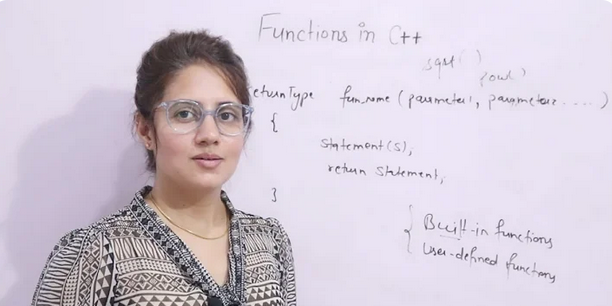 Functions in C++
sqrt()
pow()
eturnType fun_name (parameter1, parameter2 .....)
{
statement(s);
return statement;
}
{ Built-in functions
User-defined functions